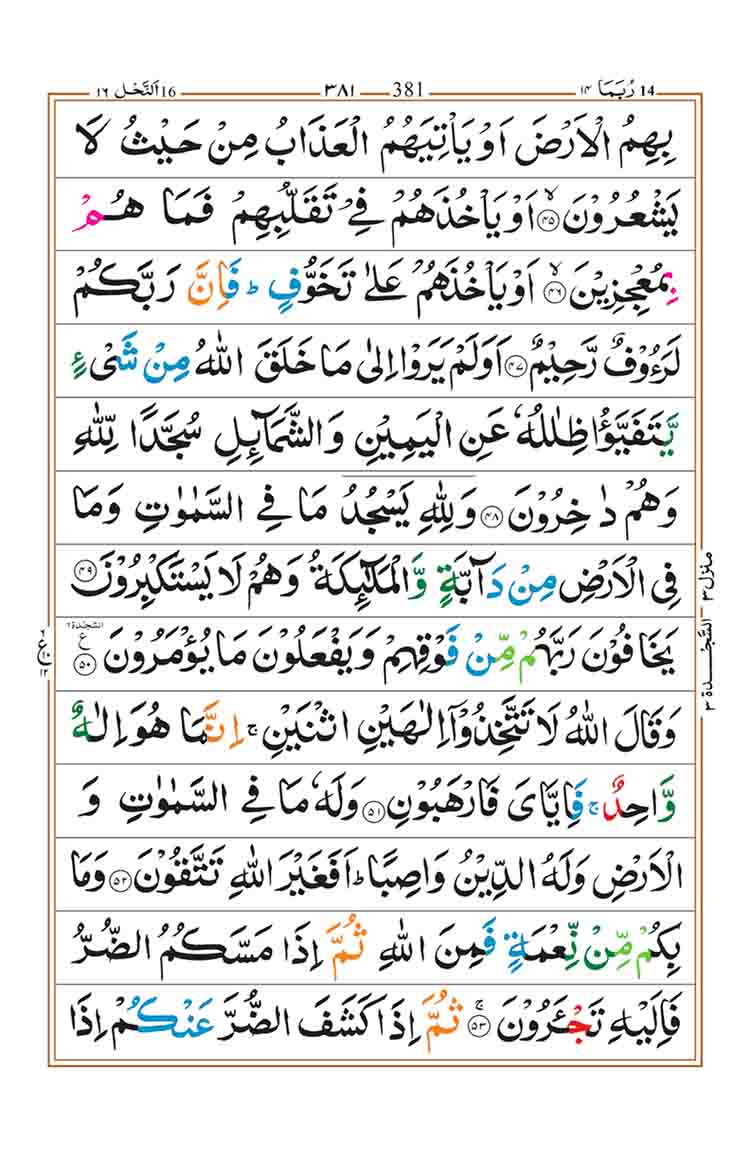 14 رُبَمَا ۱۴ 381 ۳۸۱ 16 اَلنَّحْل ۱۶
بِهِمُ الْاَرْضَ اَوْ يَاْتِيَهُمُ الْعَذَابُ مِنْ حَيْثُ لَا
يَشْعُرُوْنَ ۙ‏﴿۴۵﴾ اَوْ يَاْخُذَهُمْ فِىْ تَقَلُّبِهِمْ فَمَا هُمْ
بِمُعْجِزِيْنَ ۙ‏﴿۴۶﴾ اَوْ يَاْخُذَهُمْ عَلٰى تَخَوُّفٍ ؕ فَاِنَّ رَبَّكُمْ
لَرَءُوْفٌ رَّحِيْمٌ ﴿۴۷﴾ اَوَلَمْ يَرَوْا اِلٰى مَا خَلَقَ اللّٰهُ مِنْ شَىْءٍ
يَّتَفَيَّؤُا ظِلٰلُهٗ عَنِ الْيَمِيْنِ وَالشَّمَآئِلِ سُجَّدًا لِّلّٰهِ
وَهُمْ دٰخِرُوْنَ ﴿۴۸﴾ وَلِلّٰهِ يَسْجُدُ مَا فِى السَّمٰوٰتِ وَمَا
فِى الْاَرْضِ مِنْ دَآبَّةٍ وَّالْمَلٰٓئِكَةُ وَهُمْ لَا يَسْتَكْبِرُوْنَ ﴿۴۹﴾
يَخَافُوْنَ رَبَّهُمْ مِّنْ فَوْقِهِمْ وَيَفْعَلُوْنَ مَا يُؤْمَرُوْنَ ﴿۵۰﴾ ع السَّجْدَة
وَقَالَ اللّٰهُ لَا تَتَّخِذُوْۤا اِلٰهَيْنِ اثْنَيْنِ ۚ اِنَّمَا هُوَ اِلٰهٌ
وَّاحِدٌ ۚ فَاِيَّاىَ فَارْهَبُوْنِ ﴿۵۱﴾ وَلَهٗ مَا فِى السَّمٰوٰتِ وَ
الْاَرْضِ وَلَهُ الدِّيْنُ وَاصِبًا ؕ اَفَغَيْرَ اللّٰهِ تَتَّقُوْنَ ﴿۵۲﴾ وَمَا
بِكُمْ مِّنْ نِّعْمَةٍ فَمِنَ اللّٰهِ ثُمَّ اِذَا مَسَّكُمُ الضُّرُّ
فَاِلَيْهِ تَجْئَرُوْنَ ۚ‏﴿۵۳﴾ ثُمَّ اِذَا كَشَفَ الضُّرَّ عَنْكُمْ اِذَا
منزل ۳
السَّجْدة ۳
ع
۱۲